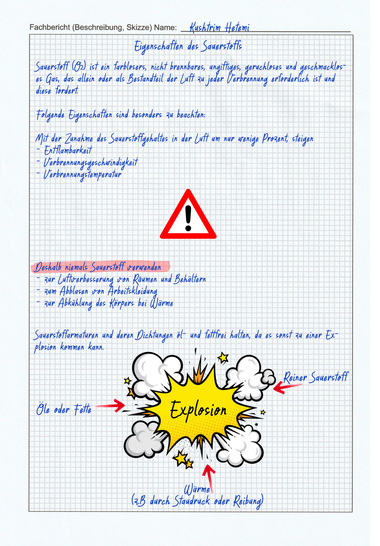 Fachbericht (Beschreibung, Skizze) Name: Kushtrim Hetemi
Eigenschaften des Sauerstoffs
Sauerstoff (O₂) ist ein farbloses, nicht brennbares, ungiftiges, geruchloses und geschmacklos-
es Gas, das allein oder als Bestandteil der Luft zu jeder Verbrennung erforderlich ist und
diese fördert.
Folgende Eigenschaften sind besonders zu beachten:
Mit der Zunahme des Sauerstoffgehaltes in der Luft um nur wenige Prozent, steigen
- Entflambarkeit
- Verbrennungsgeschwindigkeit
- Verbrennungstemperatur
!
Deshalb niemals Sauerstoff verwenden
- zur Luftverbesserung von Räumen und Behältern
- zum Abblasen von Arbeitskleidung
- zur Abkühlung des Körpers bei Wärme
Sauerstoffarmaturen und deren Dichtungen öl- und fettfrei halten, da es sonst zu einer Ex-
plosion kommen kann.
Reiner Sauerstoff
Öle oder Fette
Explosion
Wärme
(zB durch Staudruck oder Reibung)